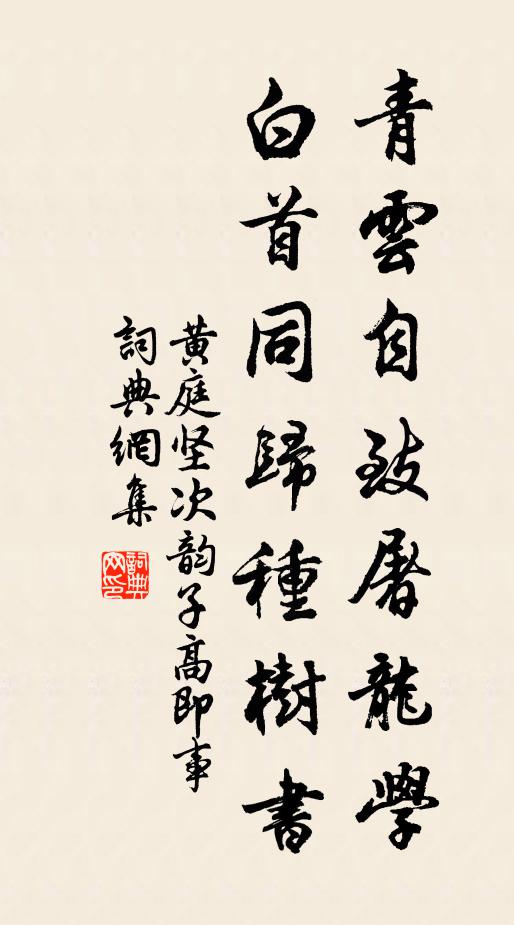 青雲自致屠龍學
白首同歸種樹書
黄庭坚次韵子高即事
詞典網集
詞典網印